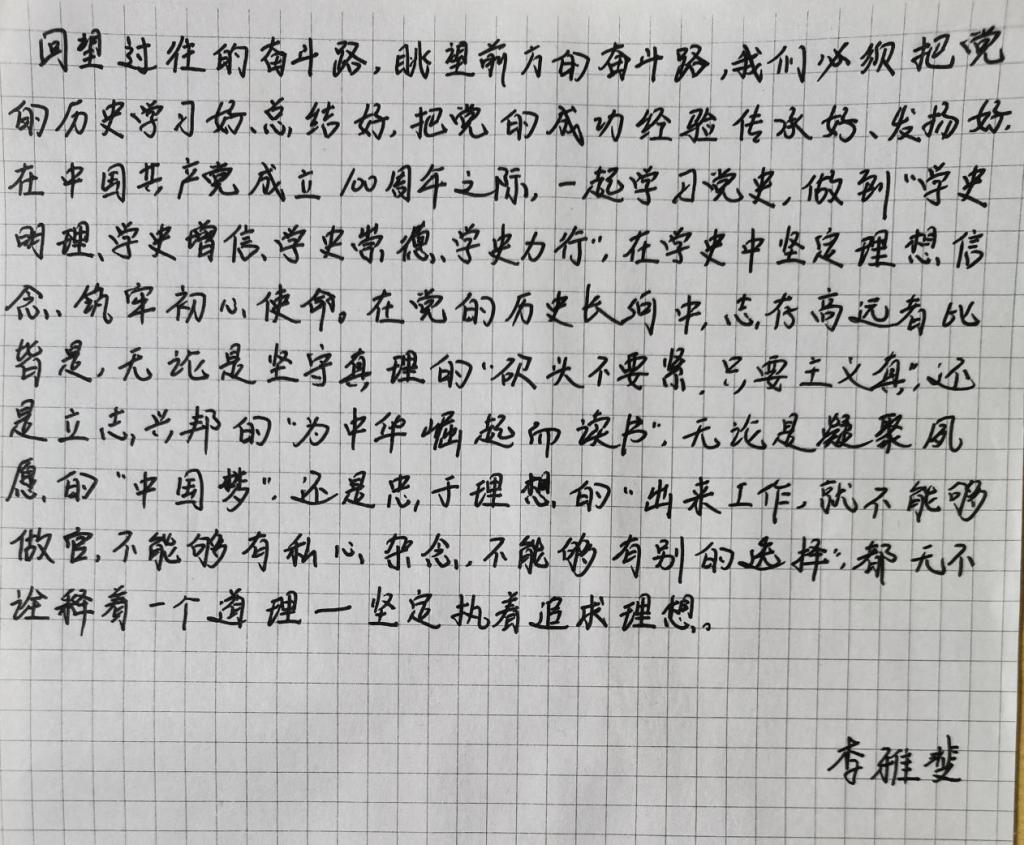 回望过往的奋斗路,眺望前方的奋斗路,我们必须把党
的历史学习好、总结好,把党的成功经验传承好、发扬好.
在中国共产党成立100周年之际,一起学习党史,做到“学史
明理、学史增信、学史崇德、学史力行”,在学史中坚定理想信
念、筑牢初心使命。在党的历史长河中,志存高远者比
皆是,无论是坚守真理的“砍头不要紧,只要主义真”,还
是立志兴邦的“为中华崛起而读书”,无论是凝聚夙
愿的“中国梦”,还是忠于理想的“出来工作,就不能够
做官,不能够有私心杂念,不能够有别的选择”,都无不
诠释着一个道理一坚定执着追求理想。
李雅斐